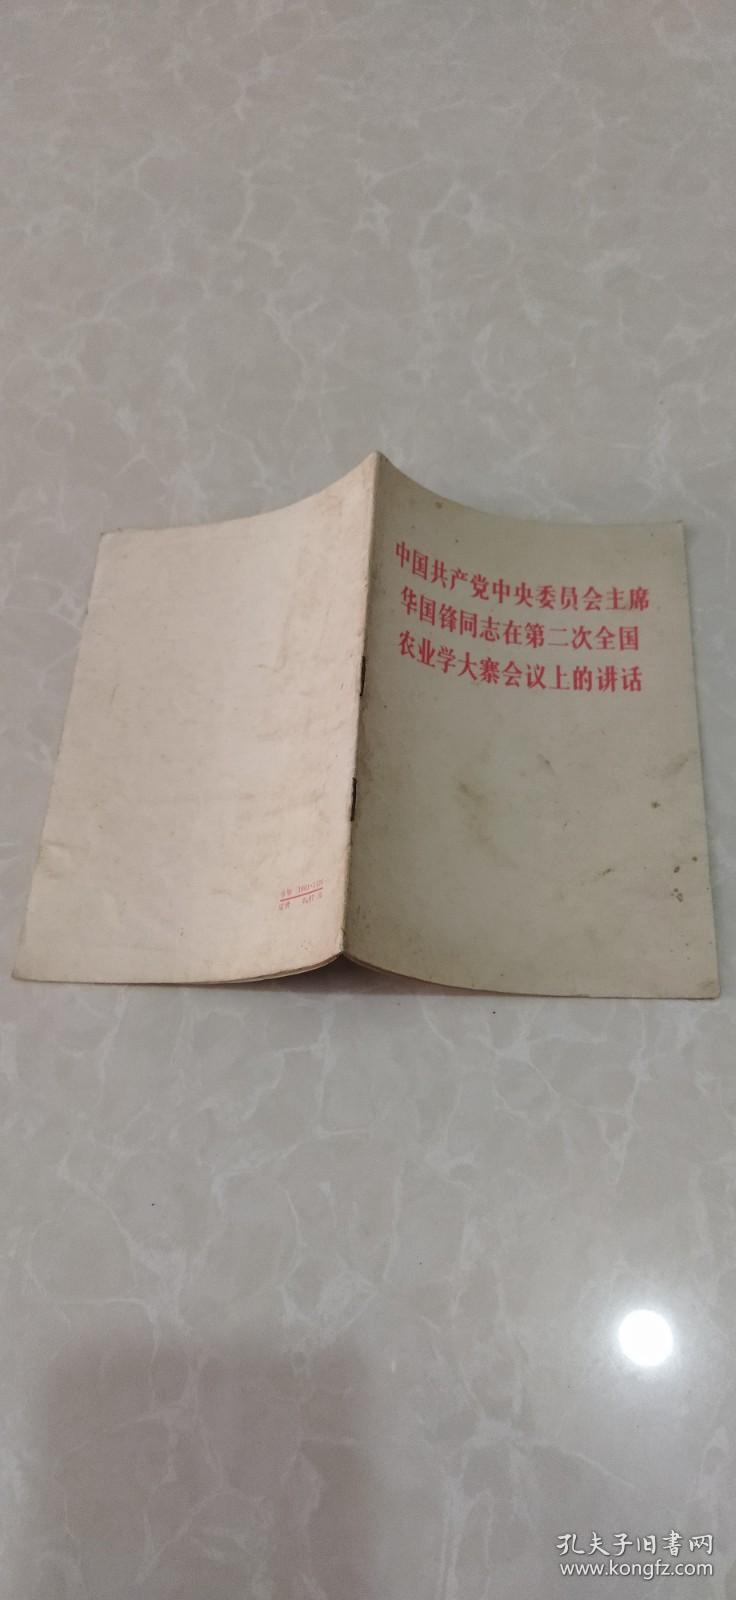 中国共产党中央委员会主席
华国锋同志在第二次全国
农业学大寨会议上的讲话
书号
定价
孔夫子旧书网
www.kongfz.com